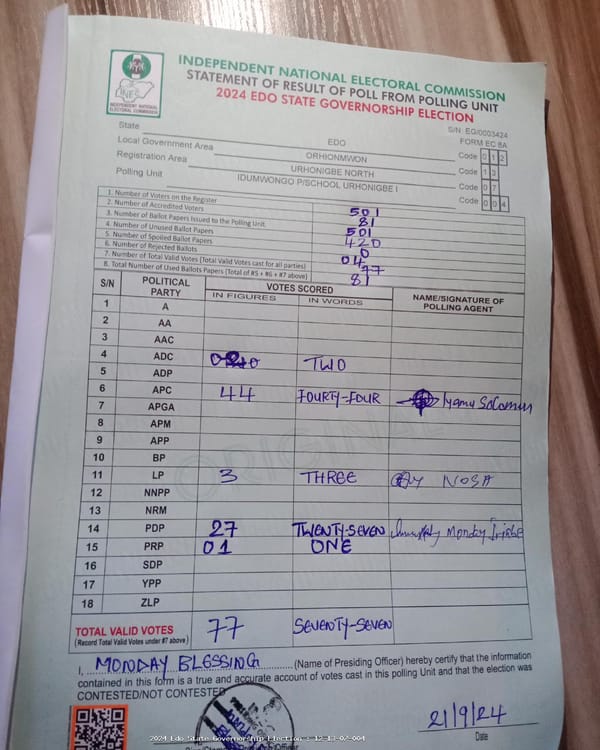 INEC
INDEPENDENT NATIONAL
ELECTORAL COMMISSION
INDEPENDENT NATIONAL ELECTORAL COMMISSION
STATEMENT OF RESULT OF POLL FROM POLLING UNIT
2024 EDO STATE GOVERNORSHIP ELECTION
S/N: EG/0003424
FORM EC 8A
State EDO Code 0 1 2
Local Government Area ORHIONMWON Code 1 3
Registration Area URHONIGBE NORTH Code 0 7
Polling Unit IDUMWONGO P/SCHOOL URHONIGBE I Code 0 0 4
1. Number of Voters on the Register 501
2. Number of Accredited Voters 81
3. Number of Ballot Papers Issued to the Polling Unit 501
4. Number of Unused Ballot Papers 420
5. Number of Spoiled Ballot Papers 0
6. Number of Rejected Ballots 04
7. Number of Total Valid Votes (Total Valid Votes cast for all parties) 77
8. Total Number of Used Ballots Papers (Total of #5 + #6 + #7 above) 81
S/N POLITICAL PARTY VOTES SCORED NAME/SIGNATURE OF POLLING AGENT
IN FIGURES IN WORDS
1 A
2 AA
3 AAC
4 ADC TWO
5 ADP
6 APC 44 FOURTY-FOUR
7 APGA
8 APM
9 APP
10 BP
11 LP 3 THREE NOSA
12 NNPP
13 NRM
14 PDP 27 TWENTY-SEVEN Monday
15 PRP 01 ONE
16 SDP
17 YPP
18 ZLP
ORIGINAL
TOTAL VALID VOTES 77 SEVENTY-SEVEN
(Record Total Valid Votes under #7 above)
I, MONDAY BLESSING (Name of Presiding Officer) hereby certify that the information
contained in this form is a true and accurate account of votes cast in this polling Unit and that the election was
CONTESTED/NOT CONTESTED
21/9/24
Date
2024 Edo State Governorship Election - 12-13-07-004